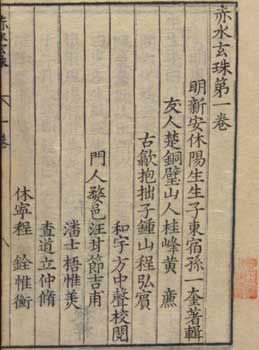 赤水玄珠第一卷
明新安休陽生生子東宿孫一奎著輯
友人楚銅璧山人桂峰黃廉
古歙抱拙子鍾山程弘賓
和宇方中聲校閱
門人黟邑汪甘節吉甫
潘士梧惟美
查道立仲脩
休寧程銓惟衡
赤水玄珠 一卷